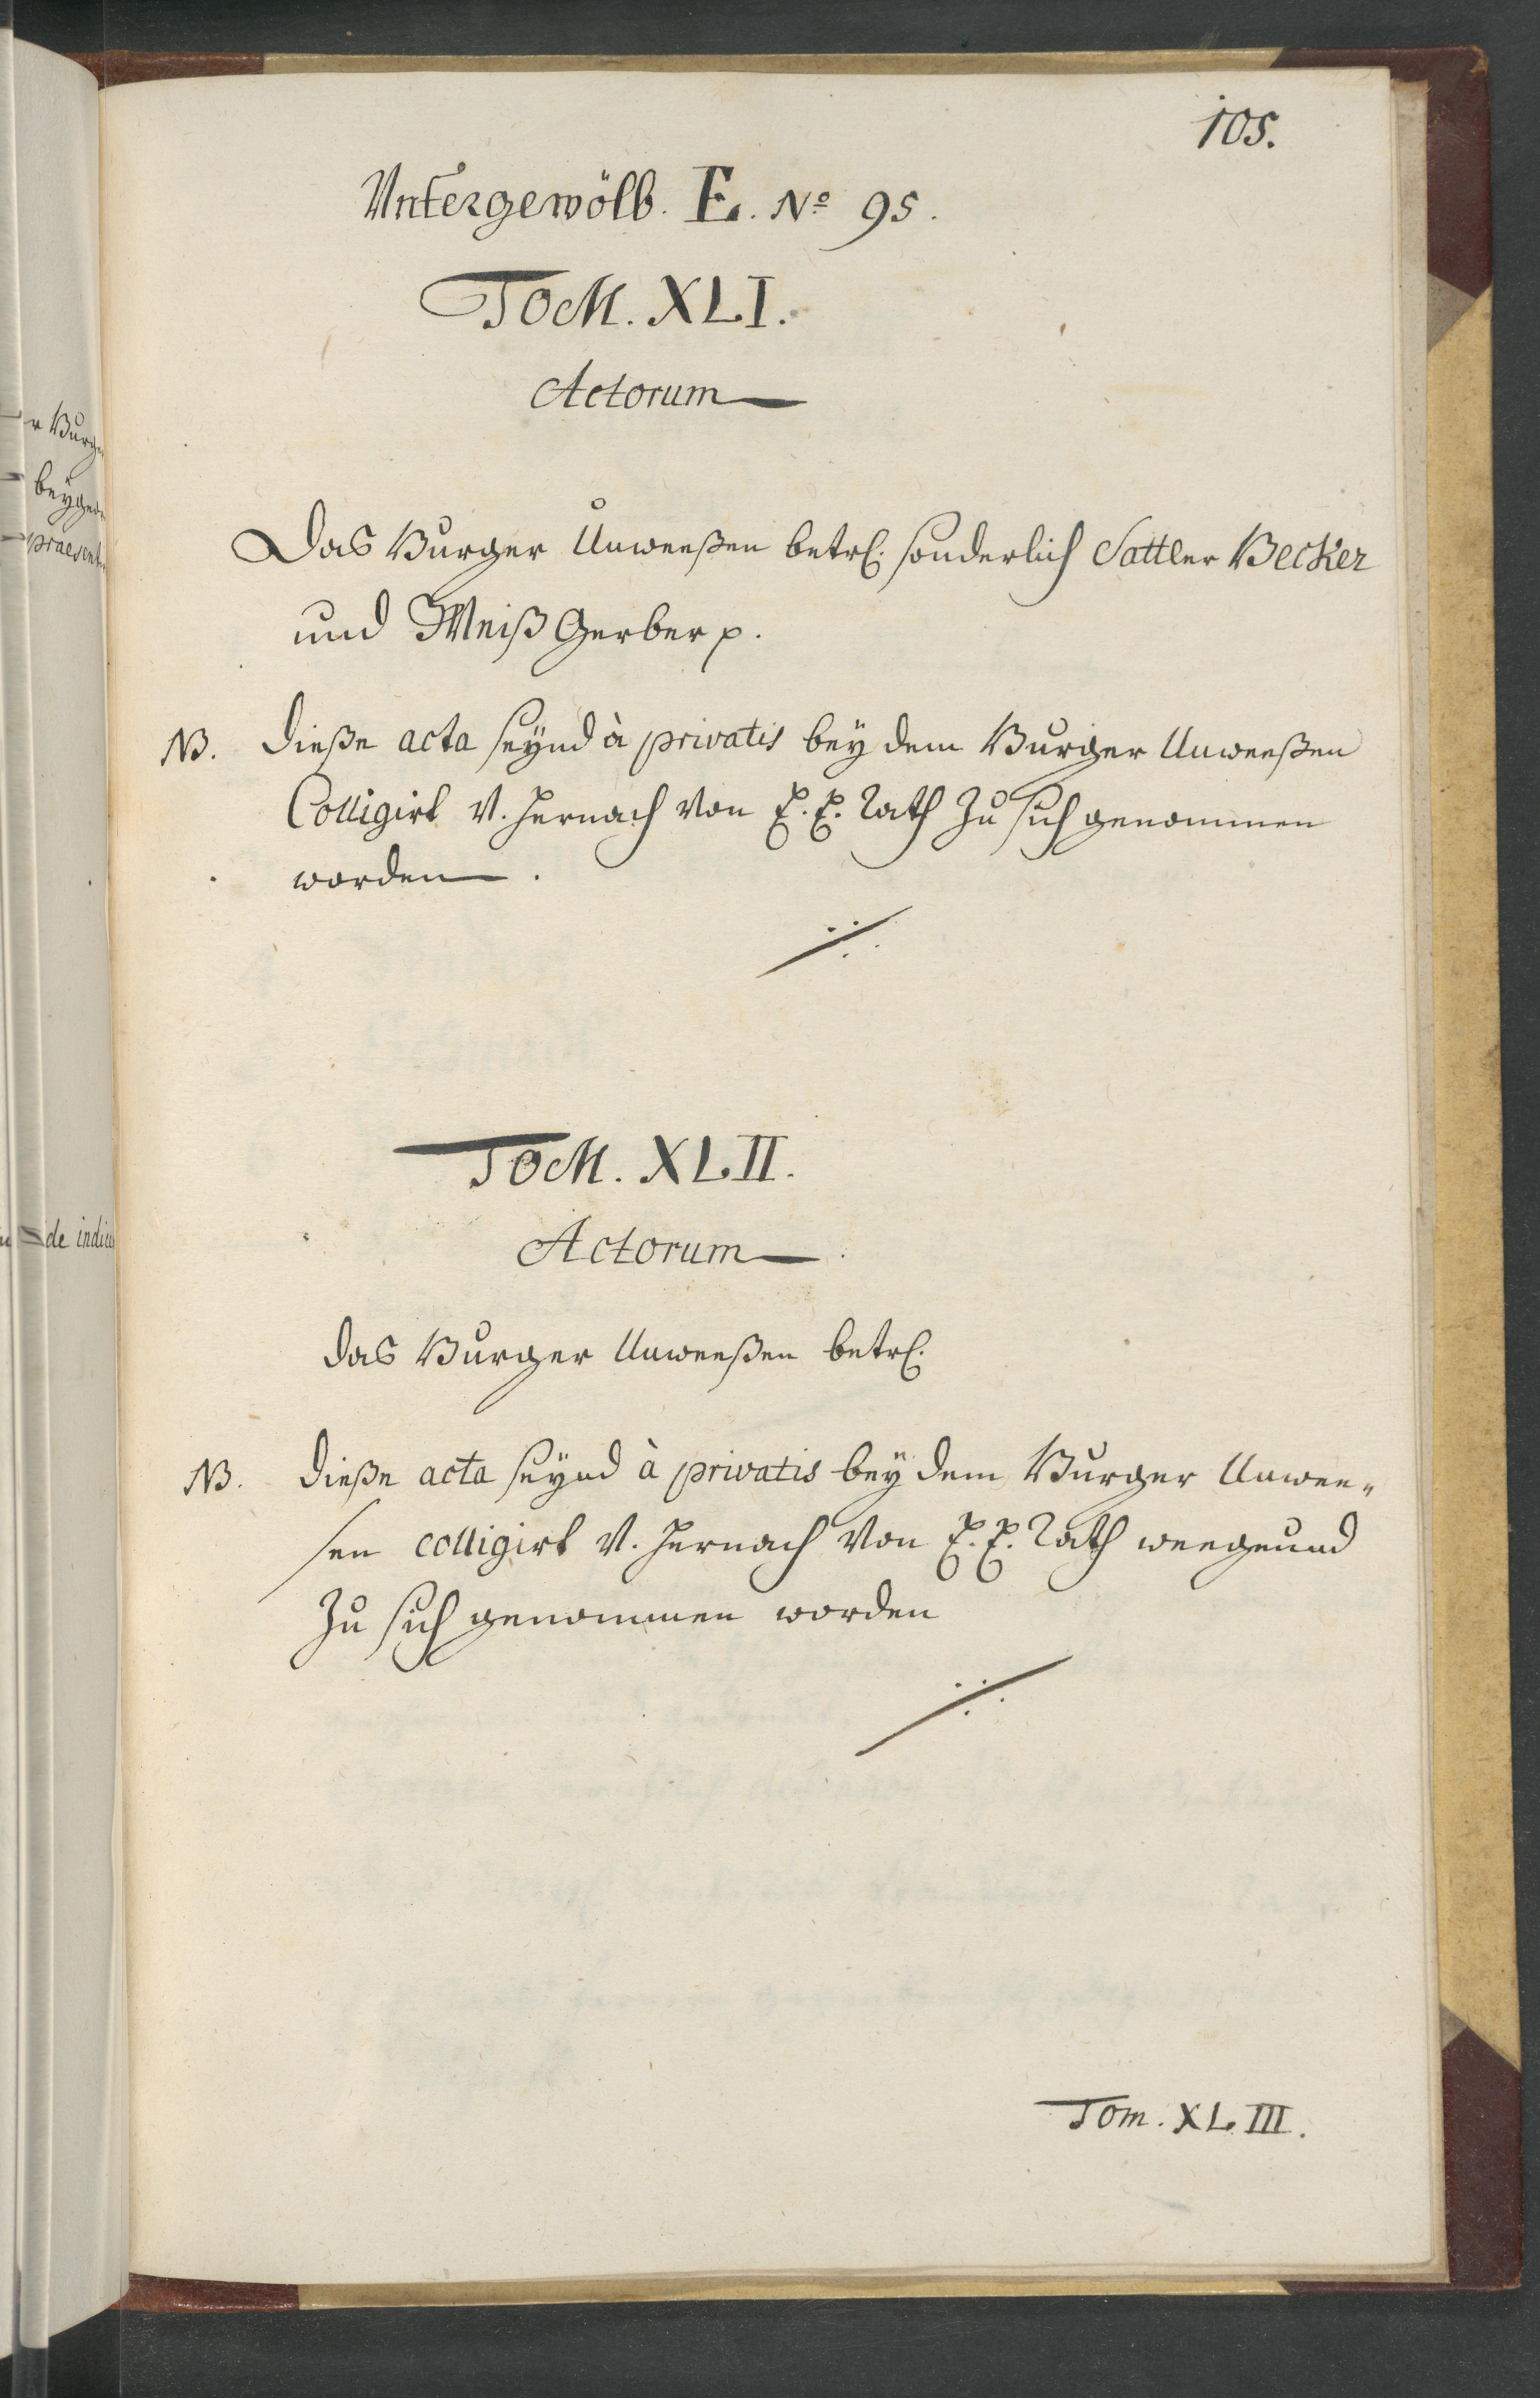 105.
Untergewölb. E. No 95.
TOM. XLI.
Actorum
Das Burger Unweeßen betrl. sonderlich Sattler Becker
und Weiß Gerber p.
NB. Dieße acta seÿnd à privatis beÿ dem Burger Unweeßen
Colligirt v. hernach von E. E. Rath zu sich genommen
worden.
TOM. XLII.
Actorum
Das Burger Unweeßen betrl.
NB. Dieße acta seÿnd à privatis beÿ dem Burger Unwee„
sen colligirt v. hernach von E. E. Rath
zu sich genommen worden
Tom. XLIII.
r Burg
beÿge
praesent
de indic